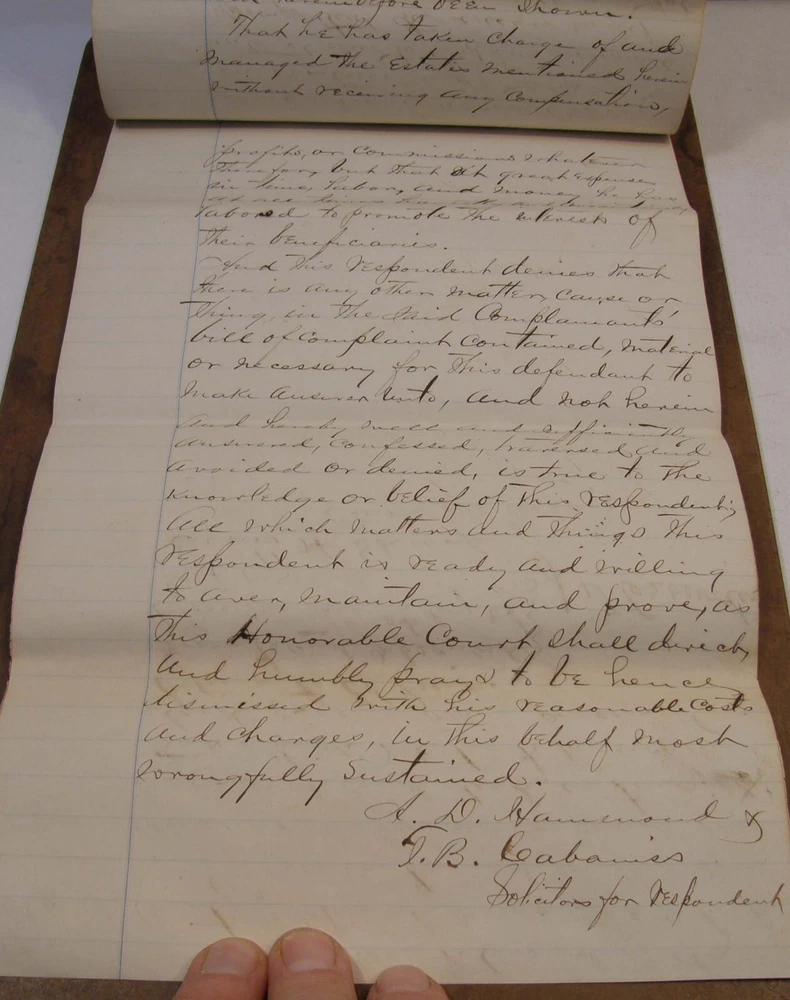 been shown.
That he has taken charge of and
managed the Estates mentioned herein
without receiving any compensation,
profits, or commissions whatever
therefor, but that at great expense
in time, labor, and money he has
labored to promote the interests of
their beneficiaries.
And this respondent denies that
there is any other matter, cause or
thing, in the said Complainants'
bill of complaint contained, material
or necessary for this defendant to
make answer unto, and not herein
and hereby well and sufficiently
answered, confessed, traversed and
avoided or denied, is true to the
knowledge or belief of this respondent;
All which matters and things this
respondent is ready and willing
to aver, maintain, and prove, as
this Honorable Court shall direct,
and humbly prays to be hence
dismissed with his reasonable costs
and charges, in this behalf most
wrongfully sustained.
A. D. Hammond &
T. B. Cabaniss
Solicitors for respondent